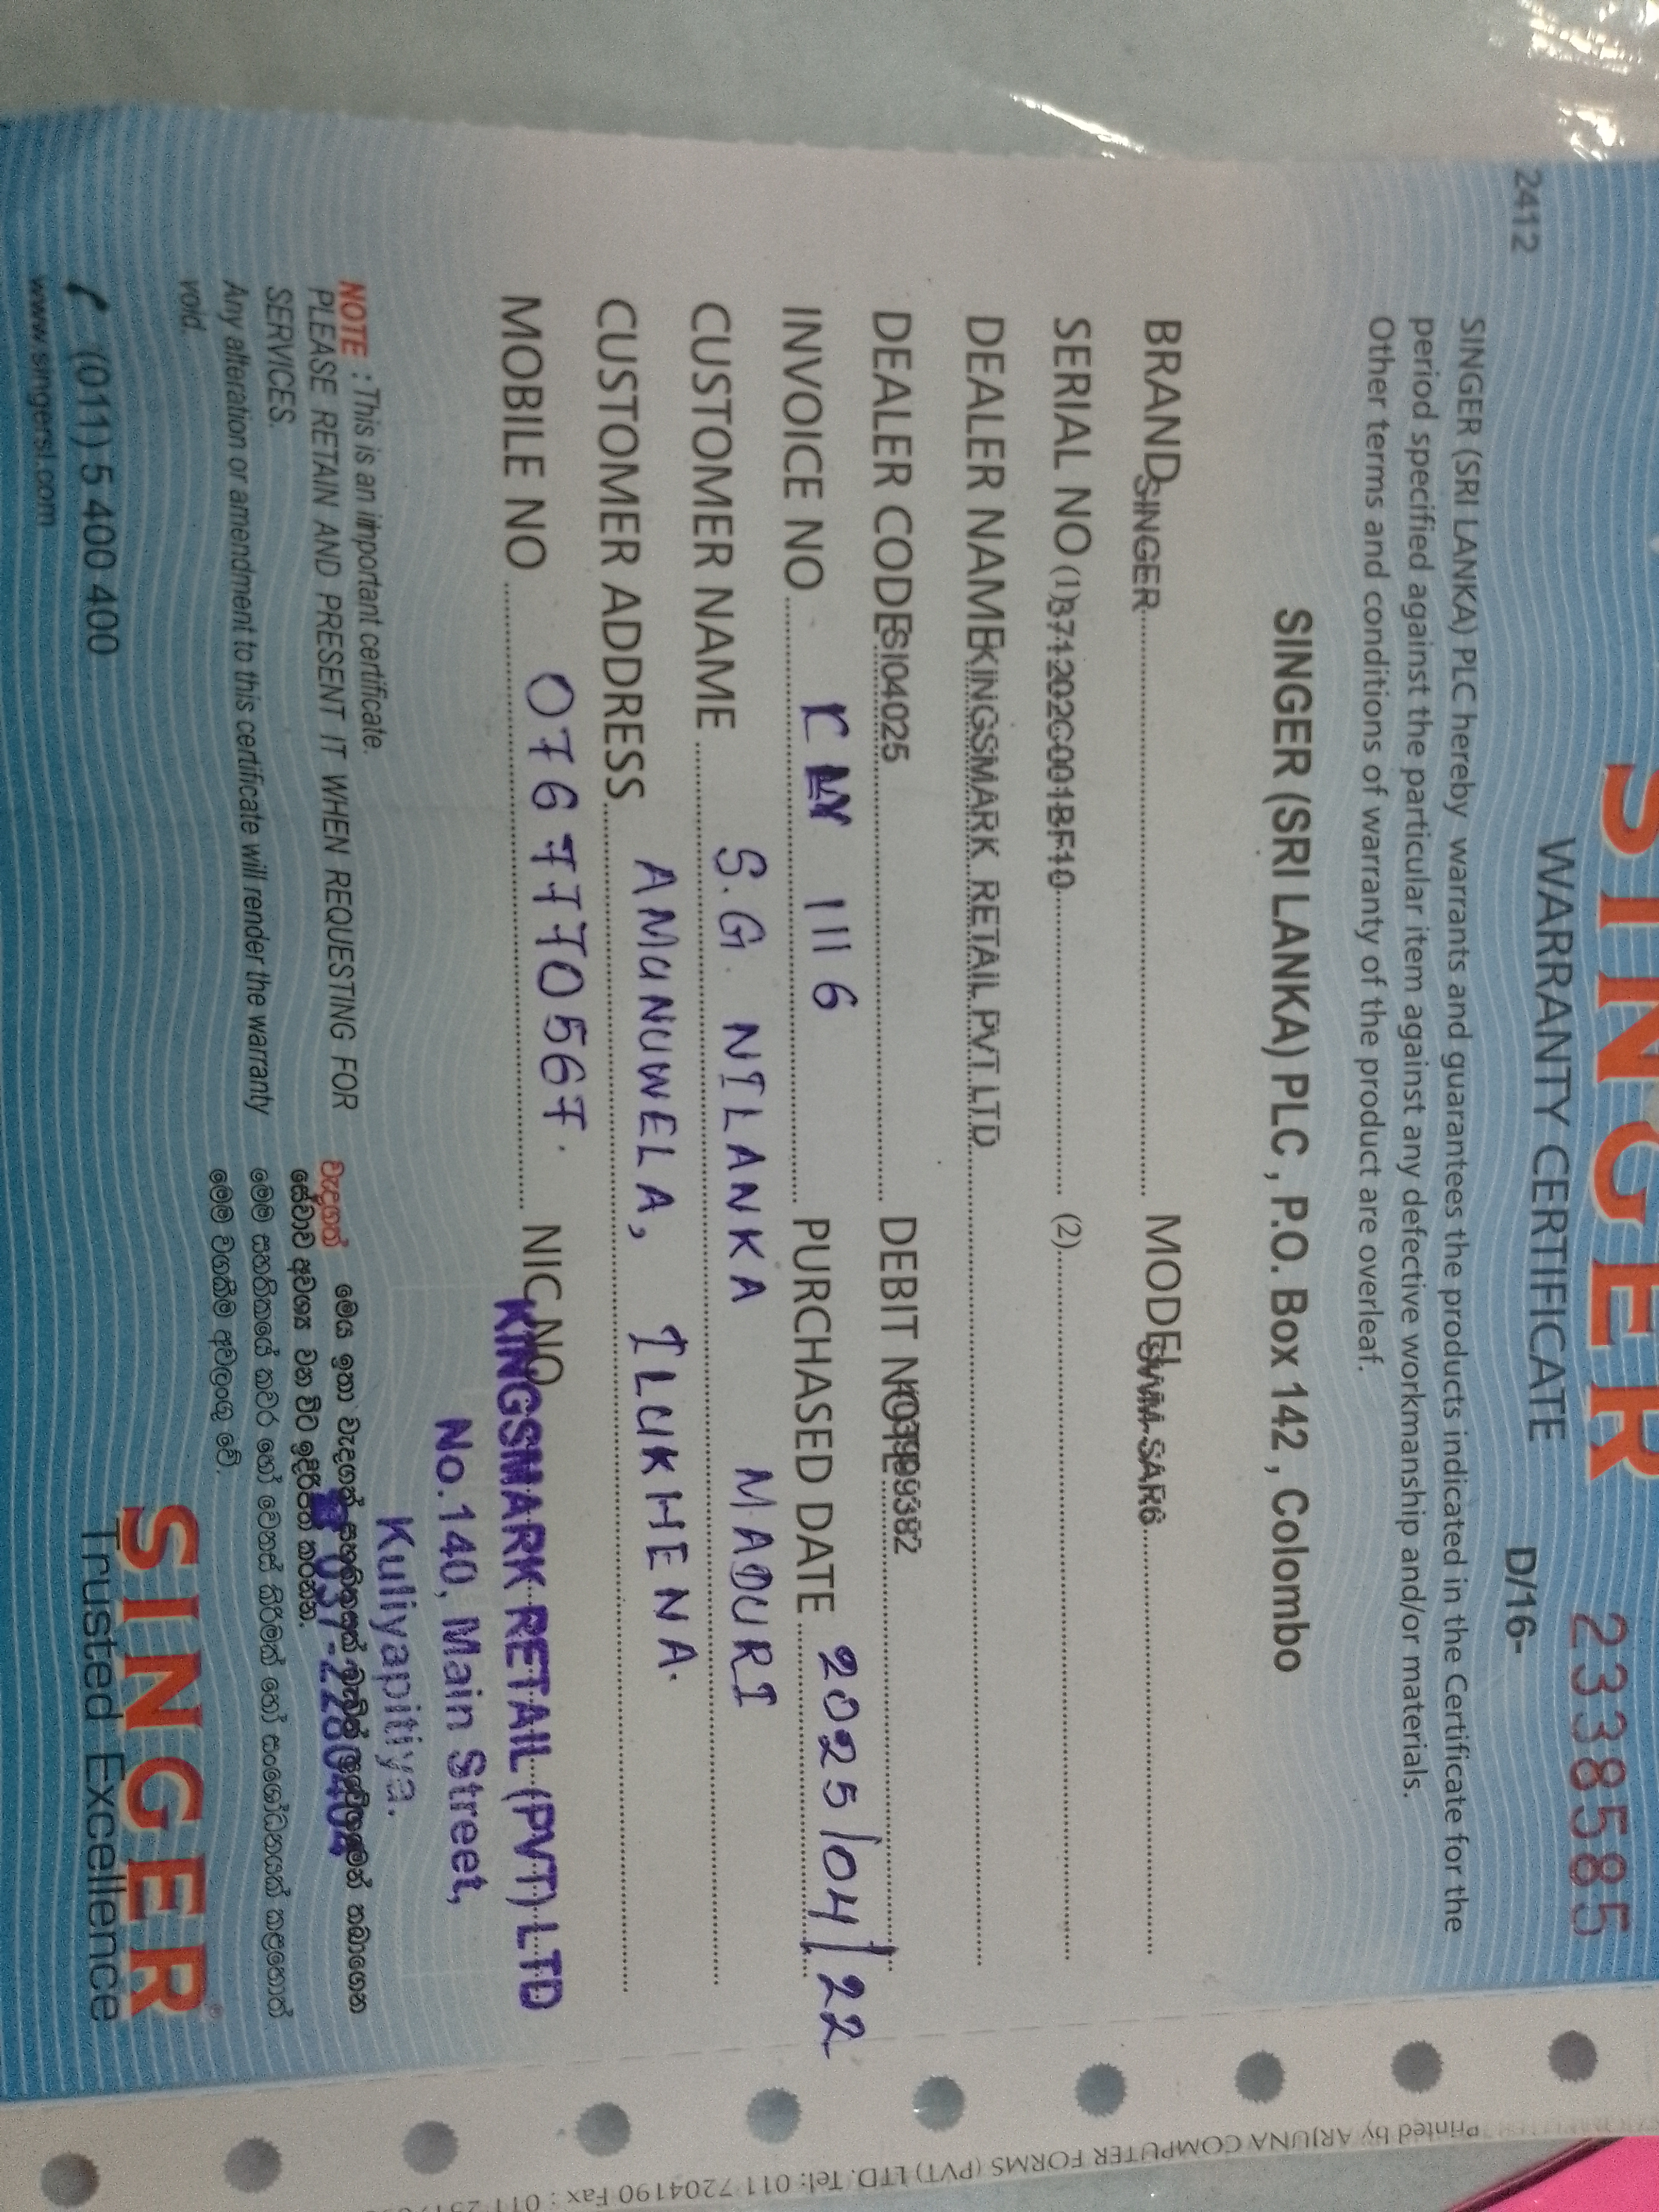 SINGER 2338585
2412 WARRANTY CERTIFICATE D/16-
SINGER (SRI LANKA) PLC hereby warrants and guarantees the products indicated in the Certificate for the
period specified against the particular item against any defective workmanship and/or materials.
Other terms and conditions of warranty of the product are overleaf.
SINGER (SRI LANKA) PLC , P.O. Box 142 , Colombo
BRAND SINGER MODEL SWM-SAR6
SERIAL NO (1) B74202C001BF10 (2)
DEALER NAME KINGSMARK RETAIL PVT LTD
DEALER CODE SI04025 DEBIT NO
INVOICE NO 1116 PURCHASED DATE 2025/04/22
CUSTOMER NAME S.G. NILANKA MADURI
CUSTOMER ADDRESS AMUNUWELA, ILUKHENA.
MOBILE NO 0767770567. NIC NO
KINGSMARK RETAIL (PVT) LTD
No.140, Main Street,
Kuliyapitiya.
037-2280404
NOTE : This is an important certificate.
PLEASE RETAIN AND PRESENT IT WHEN REQUESTING FOR
SERVICES.
Any alteration or amendment to this certificate will render the warranty
void.
වැදගත් මෙය ඉතා වැදගත් සහතිකයක් බැවින් ප්‍රවේශමෙන් තබාගෙන
සේවාව අවශ්‍ය වන විට ඉදිරිපත් කරන්න.
මෙම සහතිකයේ කවර හෝ වෙනස් කිරීමක් හෝ සංශෝධනයක් කළහොත්
මෙම වගකීම අවලංගු වේ.
(011) 5 400 400
www.singersl.com
SINGER
Trusted Excellence
Printed by ARJUNA COMPUTER FORMS (PVT) LTD. Tel: 011-7204190 Fax : 011